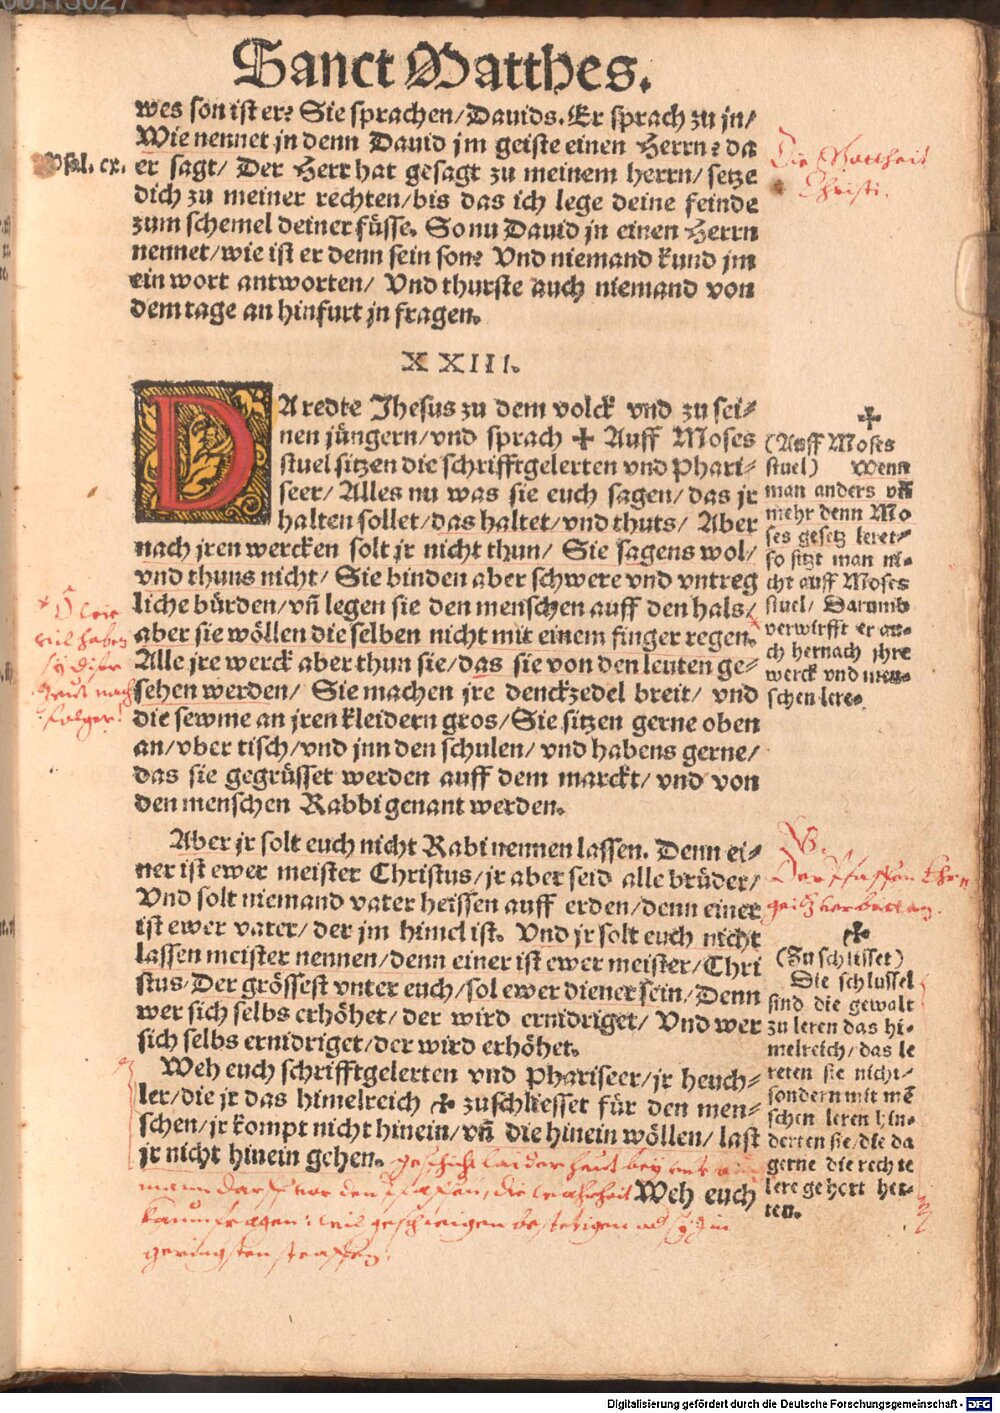 Sanct Matthes.
wes son ist er? Sie sprachen/ Dauids. Er sprach zu jn/
Wie nennet jn denn Dauid jm geiste einen Herrn? da
Psal. cx.
er sagt/ Der Herr hat gesagt zu meinem herrn/ setze
dich zu meiner rechten/ bis das ich lege deine feinde
zum schemel deiner füsse. So nu Dauid jn einen Herrn
nennet/ wie ist er denn sein son? Vnd niemand kund jm
ein wort antworten/ Vnd thurste auch niemand von
dem tage an hinfurt jn fragen.
Die Gottheit
Christi.
XXIII.
DA redte Jhesus zu dem volck vnd zu sei⸗
nen jüngern/ vnd sprach ✢ Auff Moses
stuel sitzen die schrifftgelerten vnd Phari⸗
seer/ Alles nu was sie euch sagen/ das jr
halten sollet/ das haltet/ vnd thuts/ Aber
nach jren wercken solt jr nicht thun/ Sie sagens wol/
vnd thuns nicht/ Sie binden aber schwere vnd vntreg
liche bürden/ vñ legen sie den menschen auff den hals/
aber sie wöllen die selben nicht mit einem finger regen.
Alle jre werck aber thun sie/ das sie von den leuten ge⸗
sehen werden/ Sie machen jre denckzedel breit/ vnd
die sewme an jren kleidern gros/ Sie sitzen gerne oben
an/ vber tisch/ vnd jnn den schulen/ vnd habens gerne/
das sie gegrüsset werden auff dem marckt/ vnd von
den menschen Rabbi genant werden.
✢
(Auff Moses
stuel) Wenn
man anders vñ
mehr denn Mo
ses gesetz leret⸗
so sitzt man ni⸗
cht auff Moses
stuel/ Darumb
verwirfft er au⸗
ch hernach jhre
werck vnd men⸗
schen lere.
viel haben
heut nach
folger!
Aber jr solt euch nicht Rabi nennen lassen. Denn ei⸗
ner ist ewer meister Christus/ jr aber seid alle brüder/
Vnd solt niemand vater heissen auff erden/ denn einer
ist ewer vater/ der jm himel ist. Vnd jr solt euch nicht
lassen meister nennen/ denn einer ist ewer meister/ Chri
stus/ Der grössest vnter euch/ sol ewer diener sein/ Denn
wer sich selbs erhöhet/ der wird ernidriget/ Vnd wer
sich selbs ernidriget/ der wird erhöhet.
Der Pfaffen Ehr
geitz verbotten.
Weh euch schrifftgelerten vnd Phariseer/ jr heuch⸗
ler/ die jr das himelreich ✢ zuschliesset für den men⸗
schen/ jr kompt nicht hinein/ vñ die hinein wöllen/ last
jr nicht hinein gehen.
geschicht laider heut bey
mann darff vor den Pfaffen, die warheit
Weh euch
kaum fragen: weil geschweigen
geringsten straffen.
✢
(Zu schlisset)
Die schlussel
sind die gewalt
zu leren das hi⸗
melreich/ das le
reten sie nicht/
sondern mit mē
schen leren hin⸗
derten sie/ die da
gerne die rechte
lere gehört het⸗
ten.
Digitalisierung gefördert durch die Deutsche Forschungsgemeinschaft - DFG